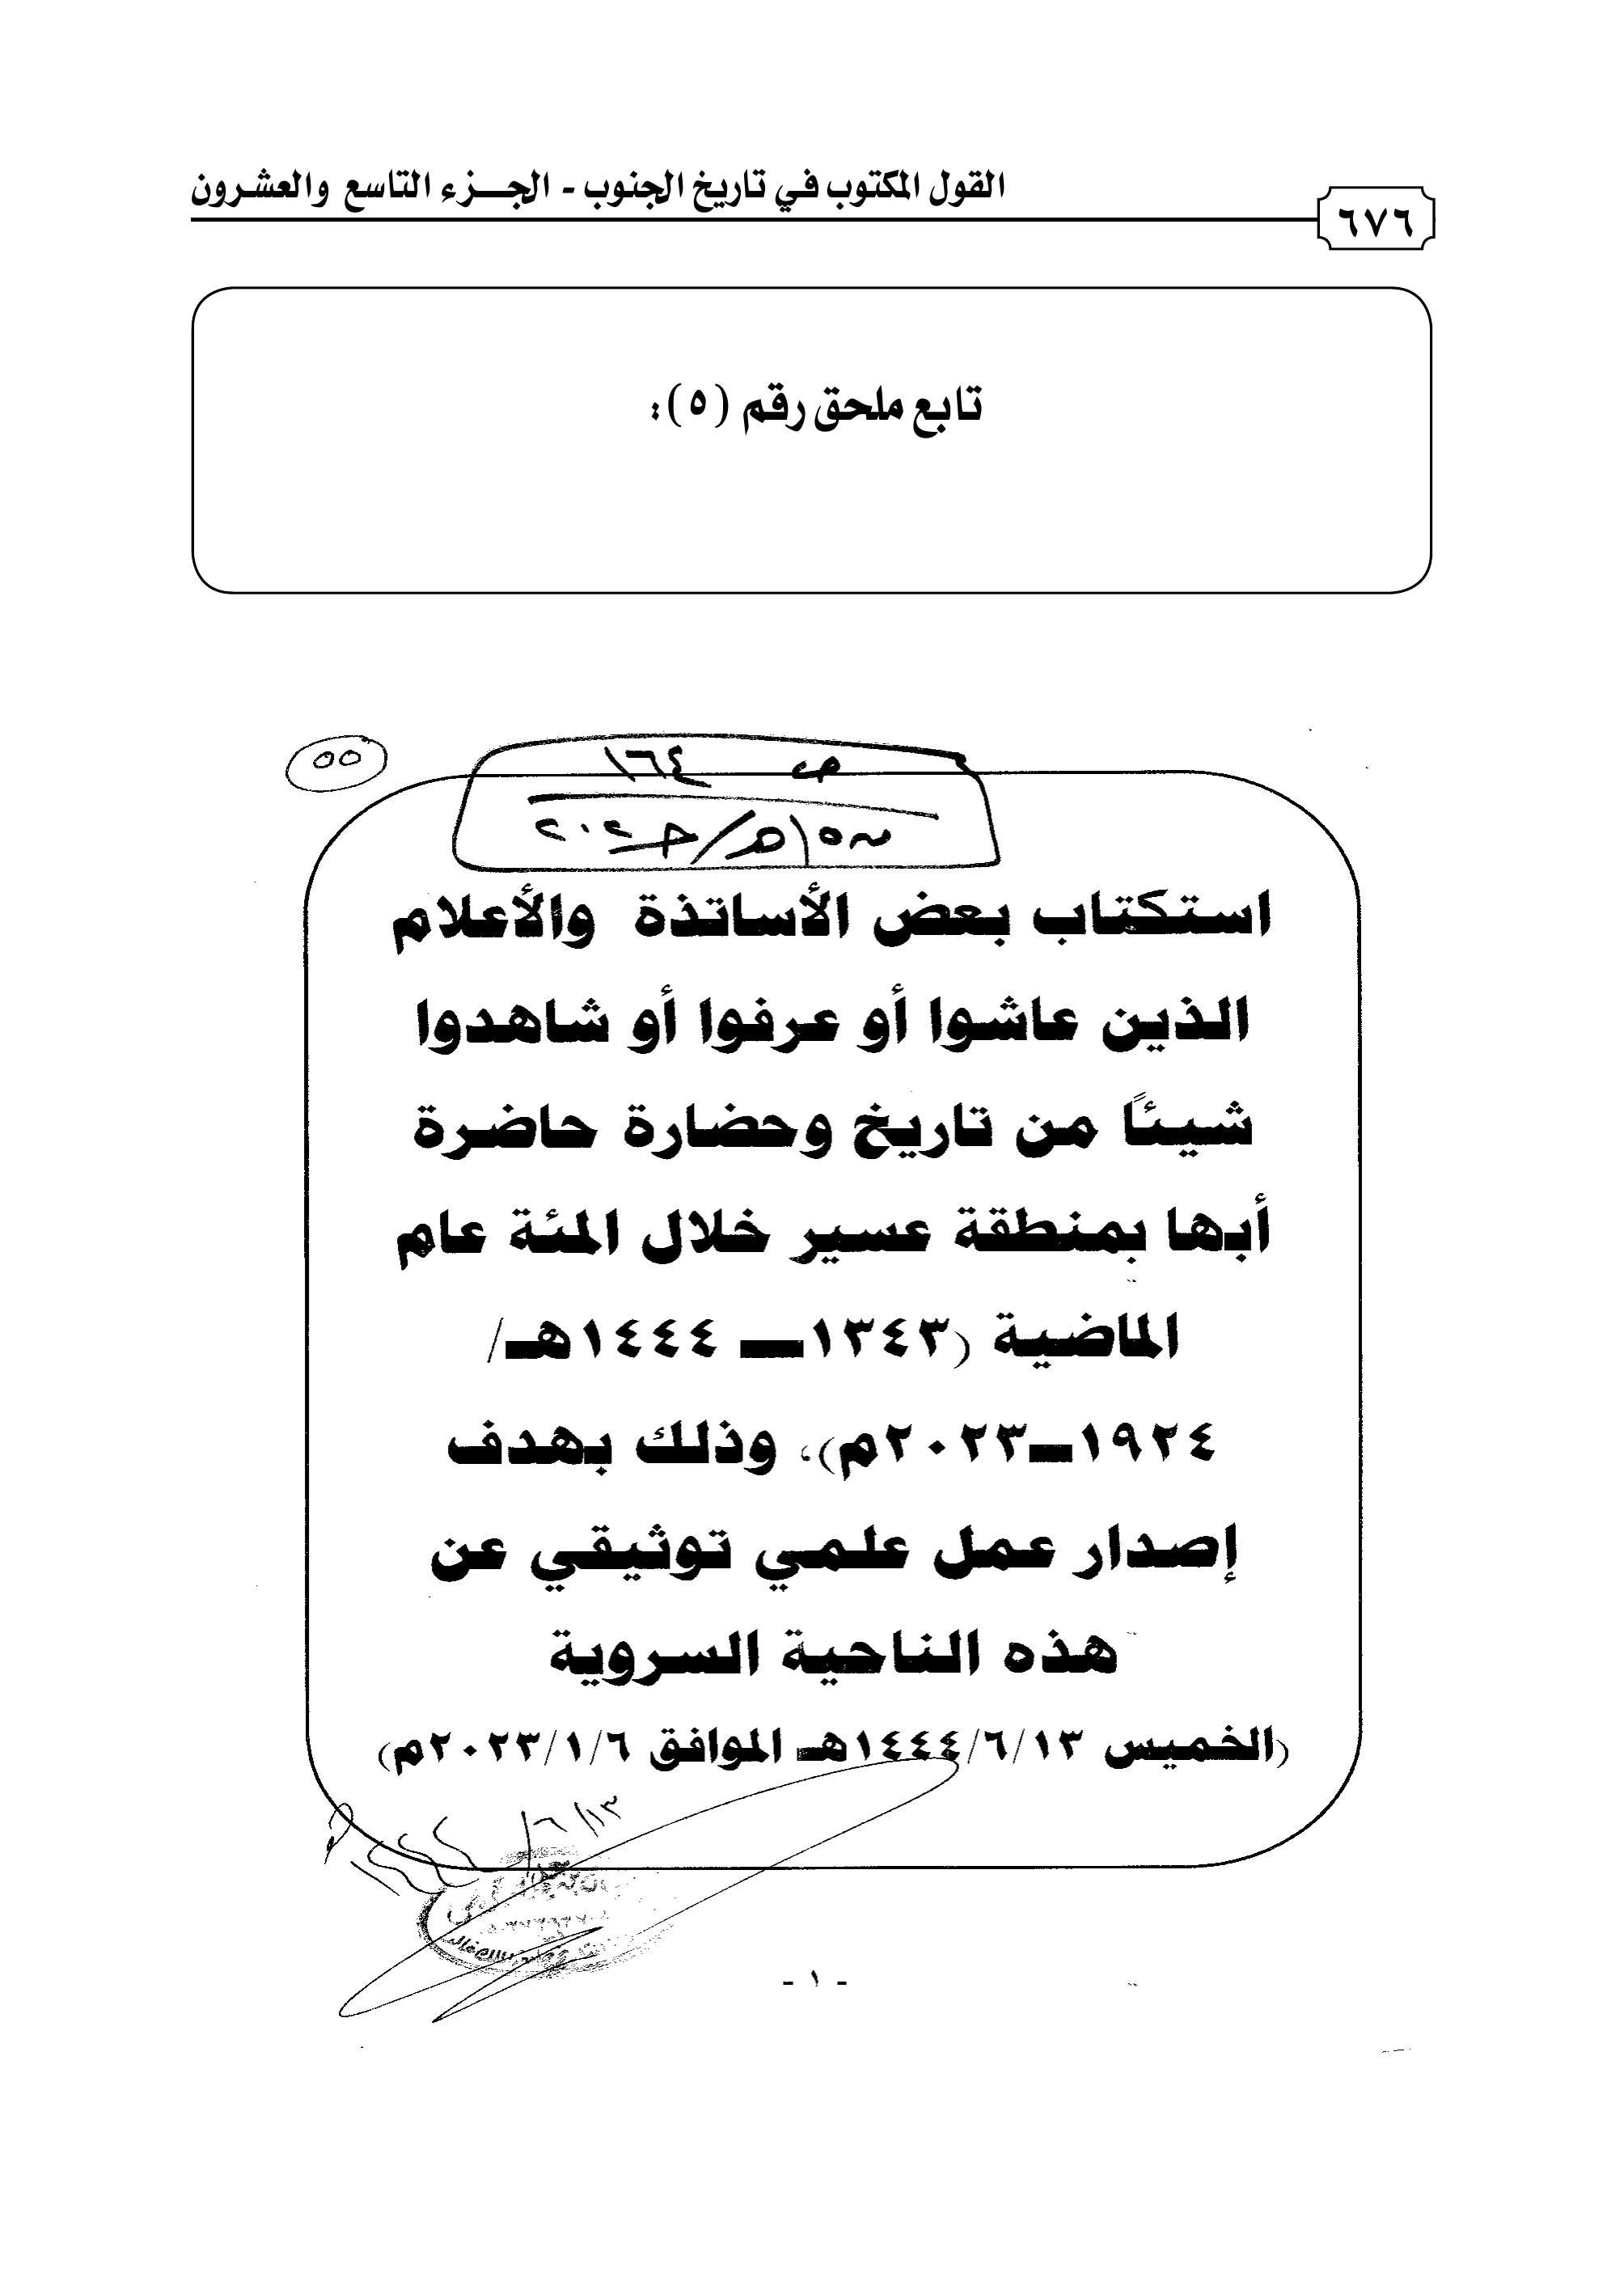 القول المكتوب في تاريخ الجنوب - الجـــزء التاسع والعشرون
٦٧٦
تابع ملحق رقم (٥):
٥٥
ص ١٦٤
استكتاب بعض الأساتذة والأعلام
الذين عاشوا أو عرفوا أو شاهدوا
شيئاً من تاريخ وحضارة حاضرة
أبها بمنطقة عسير خلال المئة عام
الماضية (١٣٤٣ــ ١٤٤٤هـ/
١٩٢٤ــ٢٠٢٣م)، وذلك بهدف
إصدار عمل علمي توثيقي عن
هذه الناحية السروية
(الخميس ١٤٤٤/٦/١٣هـ الموافق ٢٠٢٣/١/٦م)
١٣/ ٦/ ١٤٤٤هـ
- ١ -